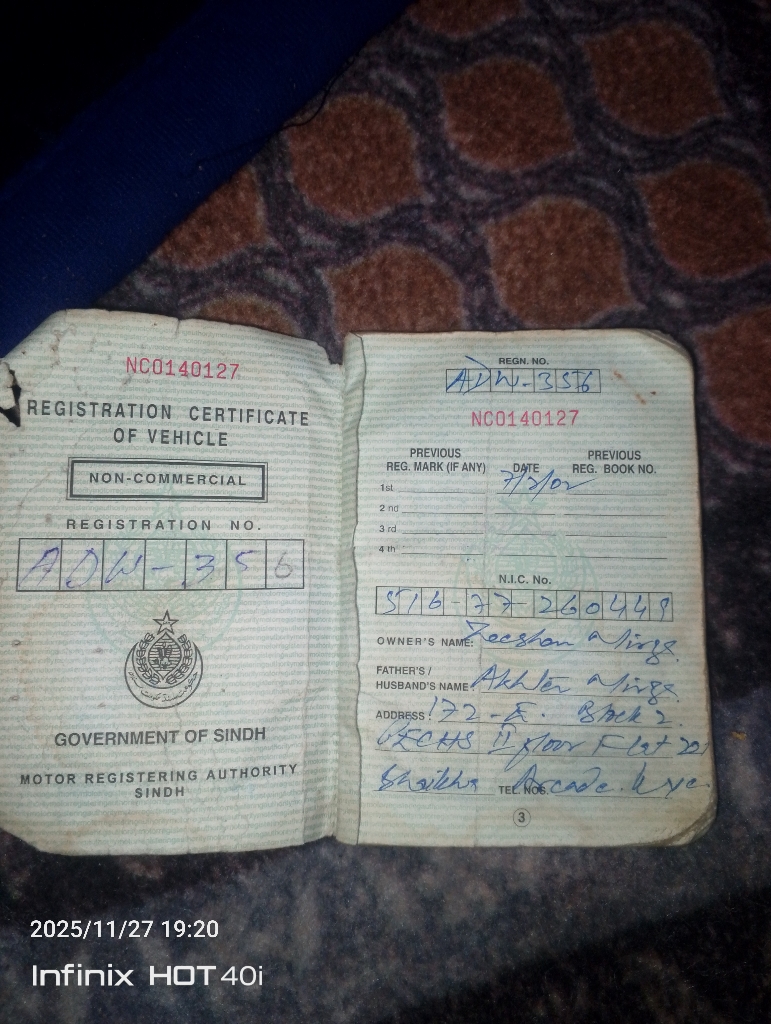 NC0140127
REGISTRATION CERTIFICATE
OF VEHICLE
NON-COMMERCIAL
REGISTRATION NO.
ADW-356
GOVERNMENT OF SINDH
MOTOR REGISTERING AUTHORITY
SINDH
REGN. NO.
ADW-356
NC0140127
PREVIOUS REG. MARK (IF ANY) DATE PREVIOUS REG. BOOK NO.
1st 7/2/02
2nd
3rd
4th
N.I.C. No.
516-77-260449
OWNER'S NAME: Zeeshan Mirza
FATHER'S /
HUSBAND'S NAME Akhter Mirza
ADDRESS: 172-E. Block 2
PECHS II floor Flat 201
Shaikha Arcade. Kyc.
TEL NOS.
3
2025/11/27 19:20
Infinix HOT 40i